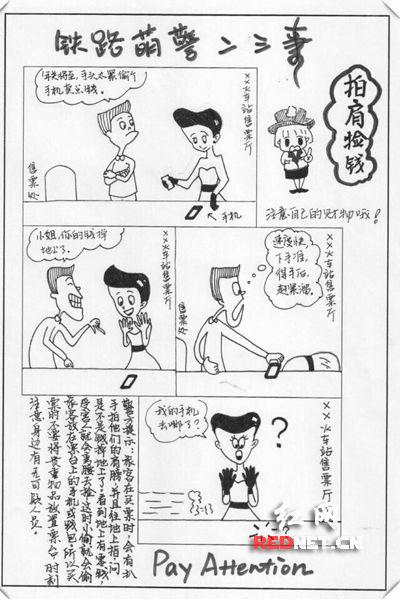 铁路萌警二三事
年关将至，手头太紧，偷个
手机卖点钱。
××火车站售票厅
售票处
手机
拍肩捡钱
注意自己的财物哦！
小姐，你的钱掉
地上了。
××火车站售票厅
售票处
速度快，
下手准，
得手后，
赶紧溜。
××火车站售票厅
我的手机
去哪了？
?
××火车站售票厅
警方提示：旅客在买票时，会有扒
手拍他们的肩膀，并且往地上指，问
是不是钱掉地上了，看到地上有零钱
旅客就会弯腰去捡，这时小偷就会偷
旅客放在票台上的手机或钱包，所以买
票时不要将贵重物品放置票台，时刻
注意身边有无可疑人员。
Pay Attention
红网
REDNET.CN